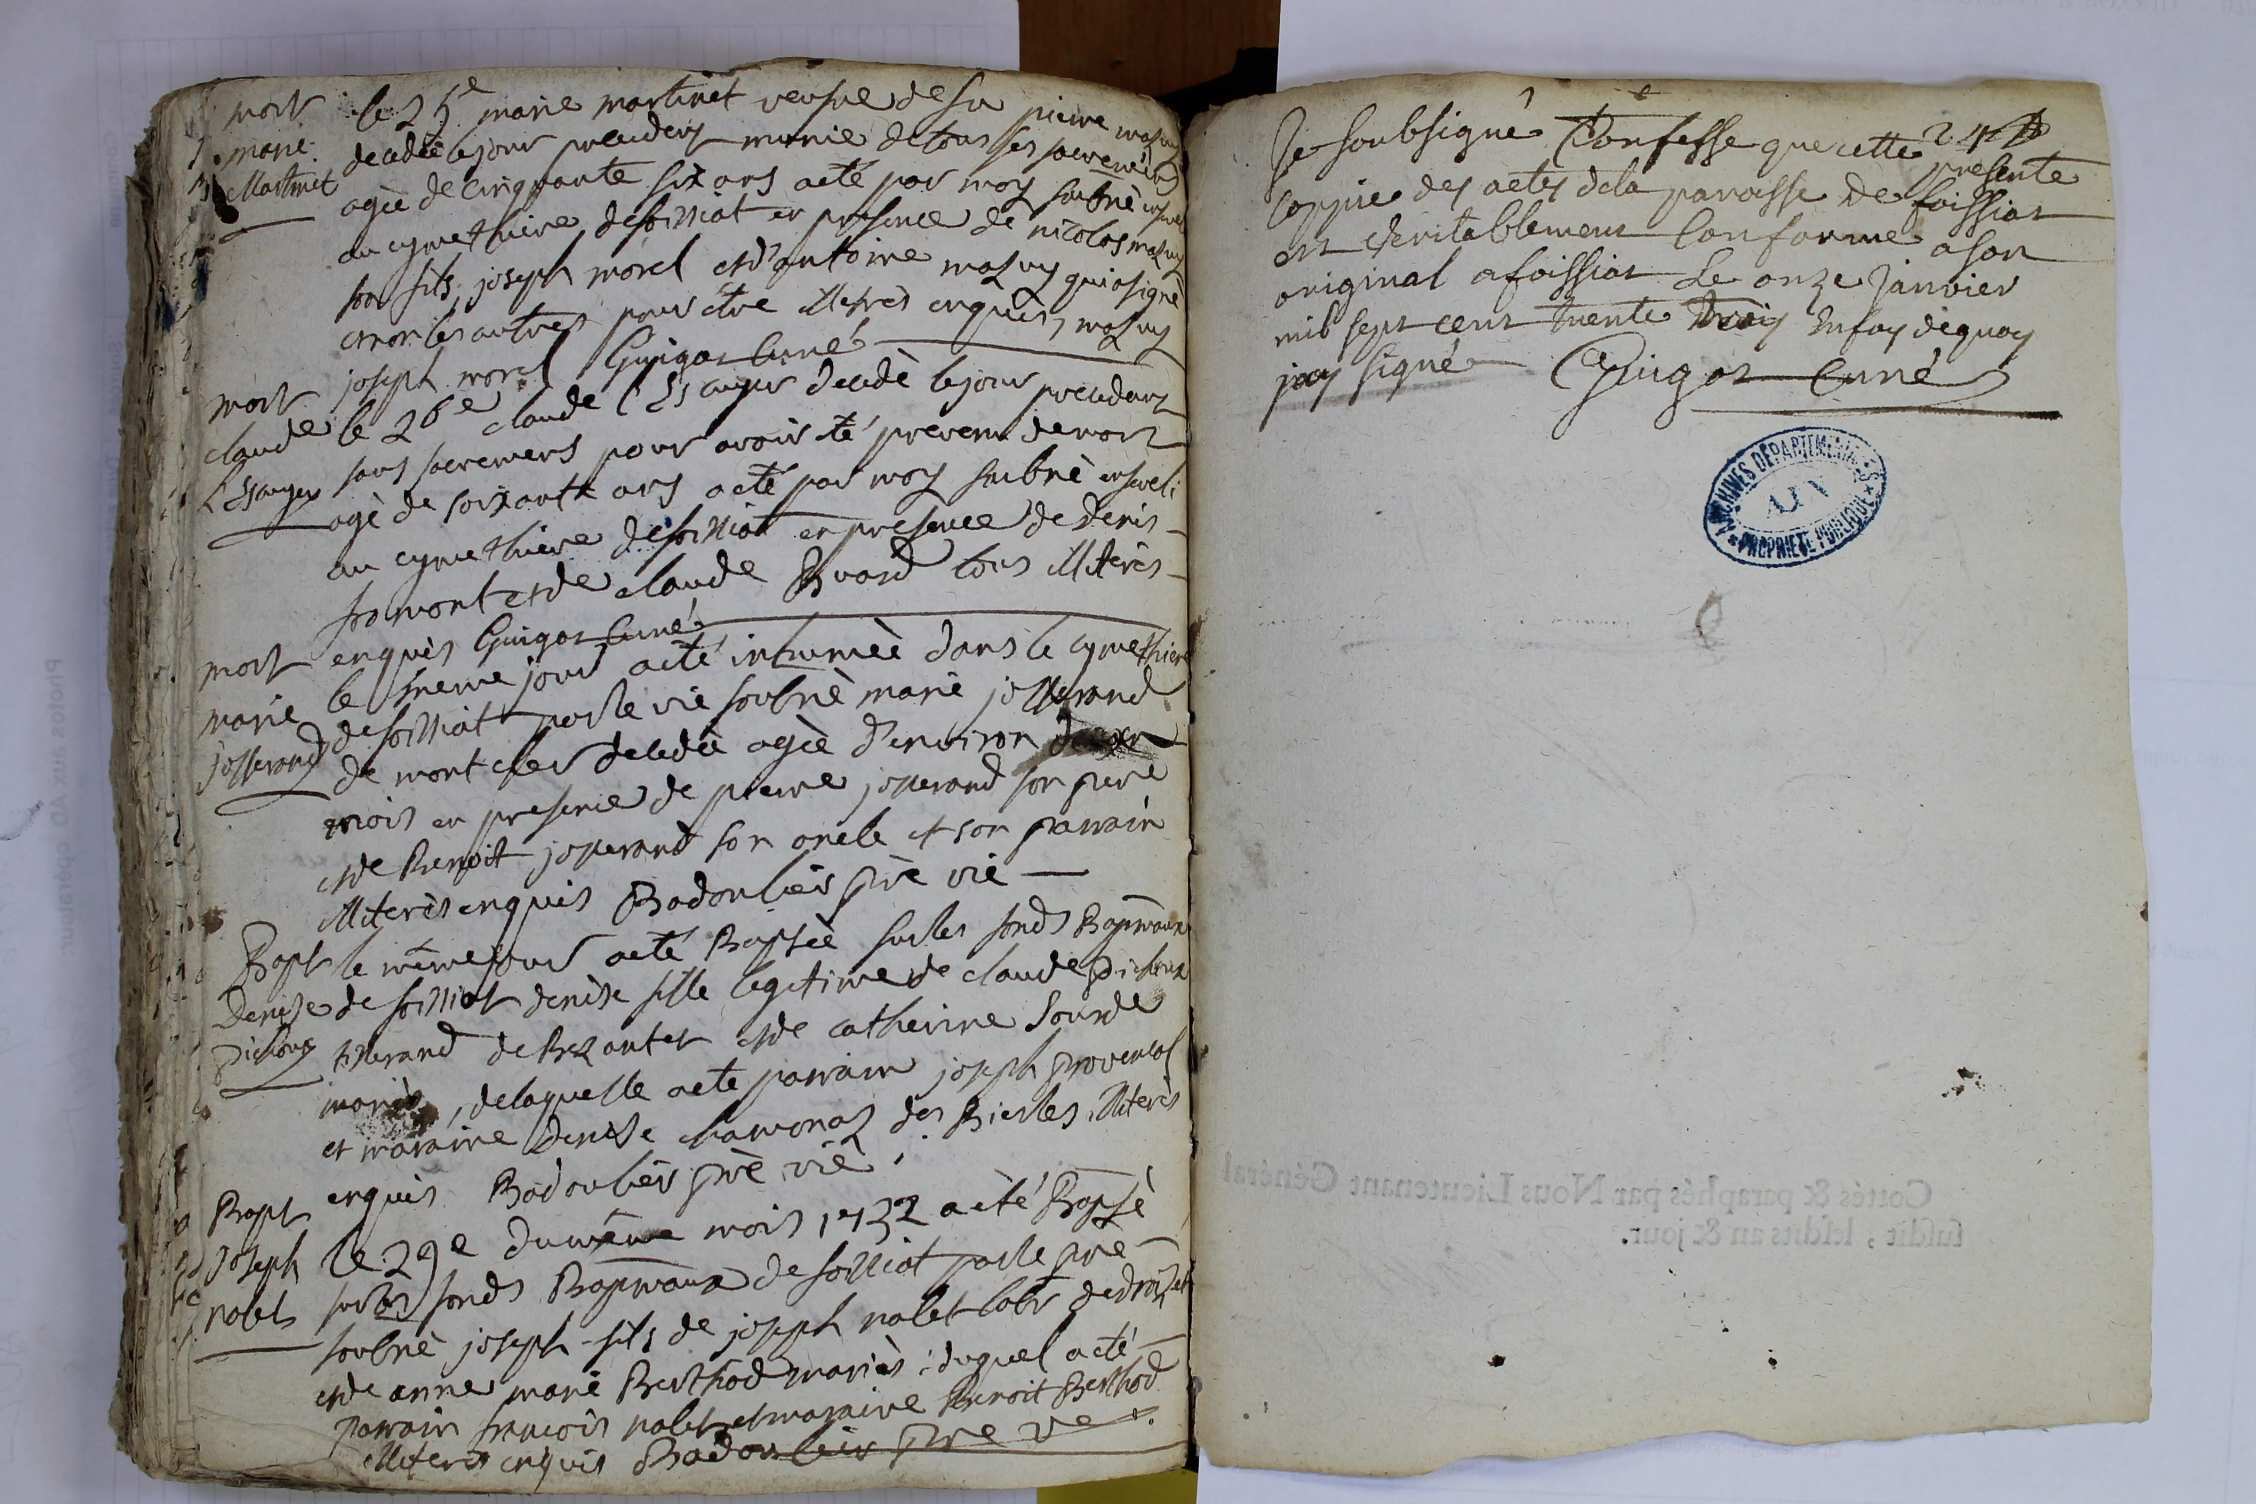 mort
marie
Martinet
le 25e marie martinet veufve de fu pierre mazuy
decedée le jour precedent munie de tous ses sacremens
agée de cinquante six ans a eté par moy subné enseveli
au cymethiere de foissiat en presence de nicolas mazuy
son fils, joseph morel et d'antoine mazuy qui a signé
et non les autres pour etre illiterés enquis, mazuy
joseph morel Guigot Curé
mort
claude
le 26e claude decedé le jour precedant
sans sacremens pour avoir eté prevenu de mort
agé de soixante ans a eté par moy subné enseveli
au cymethiere de foissiat en presence de denis
fromont et de claude Buard tous illiterés
enquis Guigot Curé
mort
marie
josserand
le meme jour a eté inhumée dans le cymethiere
de foissiat par le vic soubné marie josserand
de montcler decedée agée d'environ
mois en presence de pierre josserand son pere
et de Benoit josserand son oncle et son parrain
illiterés enquis Badoulier pre vic
Bapt
Denise
Pichoux
le même jour a eté Baptée sur les fonds Baptmaux
de foissiat denise fille legitime de claude Pichoux
tisserand de Bezantet et de catherine Sourde
mariés, de laquelle a eté parrain joseph provencal
et maraine denise chamonaz des Bierles illiterés
enquis Badoulier pre vic
Bapt
Joseph
nalet
le 29e du même mois 1732 a eté Bapté
sur les fonds Baptmaux de foissiat par le pre
soubné joseph fils de joseph nalet labr de
et de anne marie Berthod mariés; duquel a eté
parrain francois nalet et maraine Benoit Berthod
illiterés enquis Badoulier pre vic
24
Je soubsigné Confesse que cette presente
coppie des actes de la paroisse de foissiat
est veritablement Conforme a son
original a foissiat le onze Janvier
mil sept cent trente trois En foy de quoy
jay signé Guigot Curé
ARCHIVES DÉPARTEMENTALES
AIN
PROPRIÉTÉ PUBLIQUE
Cottés & paraphés par Nous Lieutenant Général
susdit, lesdits an & jour.